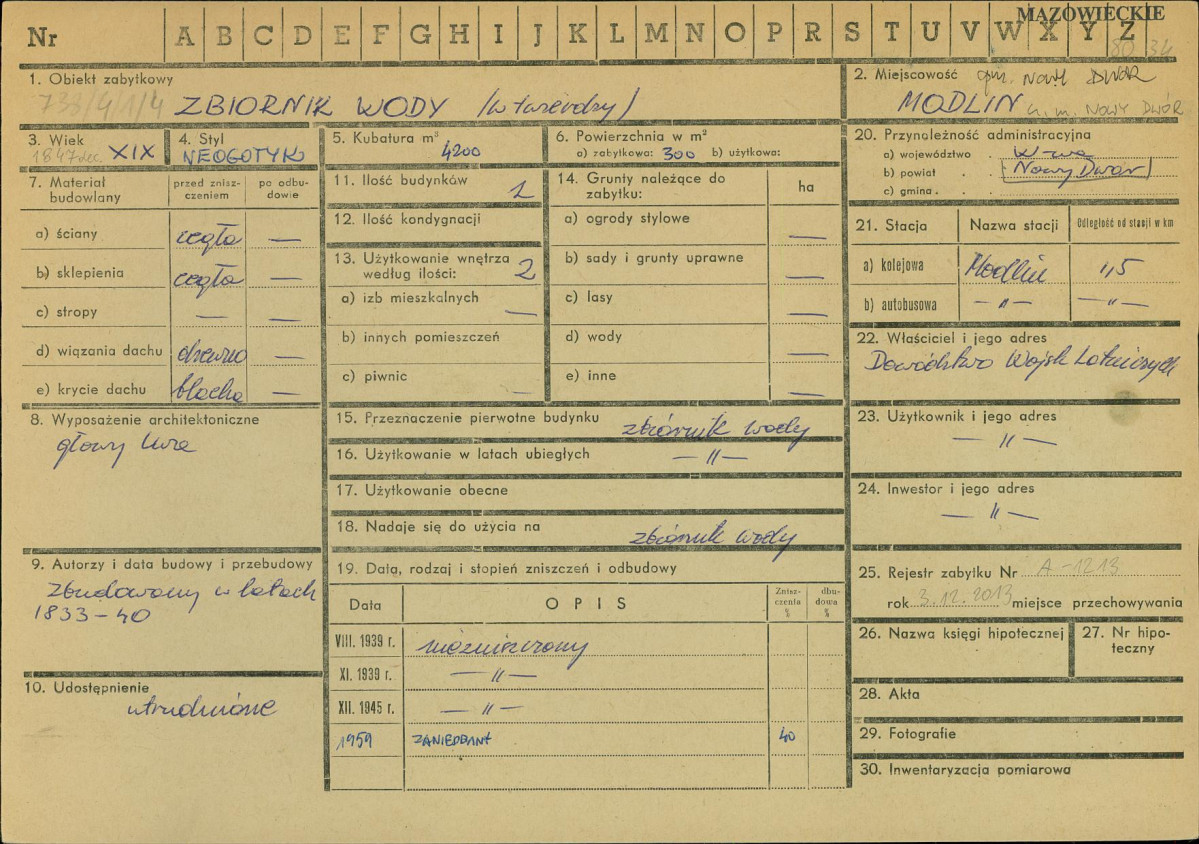 MAZOWIECKIE
Nr A B C D E F G H I J K L M N O P R S T U V W X Y Z
80 34
1. Obiekt zabytkowy
733/4/1/4 ZBIORNIK WODY (w twierdzy)
2. Miejscowość gm. NOWY DWÓR
MODLIN k. m. NOWY DWÓR
3. Wiek
1847 dec. XIX
4. Styl
NEOGOTYK
5. Kubatura m³
4200
6. Powierzchnia w m²
a) zabytkowa: 300 b) użytkowa:
7. Materiał budowlany
przed zniszczeniem
po odbudowie
a) ściany cegła —
b) sklepienia cegła —
c) stropy — —
d) wiązania dachu drewno —
e) krycie dachu blacha —
8. Wyposażenie architektoniczne
głowy lwie
9. Autorzy i data budowy i przebudowy
Zbudowany w latach
1833-40
10. Udostępnienie
utrudnione
11. Ilość budynków 1
12. Ilość kondygnacji
13. Użytkowanie wnętrza
według ilości: 2
a) izb mieszkalnych —
b) innych pomieszczeń
c) piwnic —
14. Grunty należące do
zabytku:
ha
a) ogrody stylowe —
b) sady i grunty uprawne —
c) lasy —
d) wody —
e) inne —
15. Przeznaczenie pierwotne budynku zbiornik wody
16. Użytkowanie w latach ubiegłych — " —
17. Użytkowanie obecne
18. Nadaje się do użycia na zbiornik wody
19. Data, rodzaj i stopień zniszczeń i odbudowy
Data OPIS Zniszczenia % dbudowa %
VIII. 1939 r. niezniszczony
XI. 1939 r. — " —
XII. 1945 r. — " —
1959 ZANIEDBANY 40
20. Przynależność administracyjna
a) województwo . W-wa
b) powiat . . Nowy Dwór
c) gmina . .
21. Stacja Nazwa stacji Odległość od stacji w km
a) kolejowa Modlin 1,5
b) autobusowa — " — — " —
22. Właściciel i jego adres
Dowództwo Wojsk Lotniczych
23. Użytkownik i jego adres
— " —
24. Inwestor i jego adres
— " —
25. Rejestr zabytku Nr A-1213
rok 3.12.2013 miejsce przechowywania
26. Nazwa księgi hipotecznej
27. Nr hipoteczny
28. Akta
29. Fotografie
30. Inwentaryzacja pomiarowa